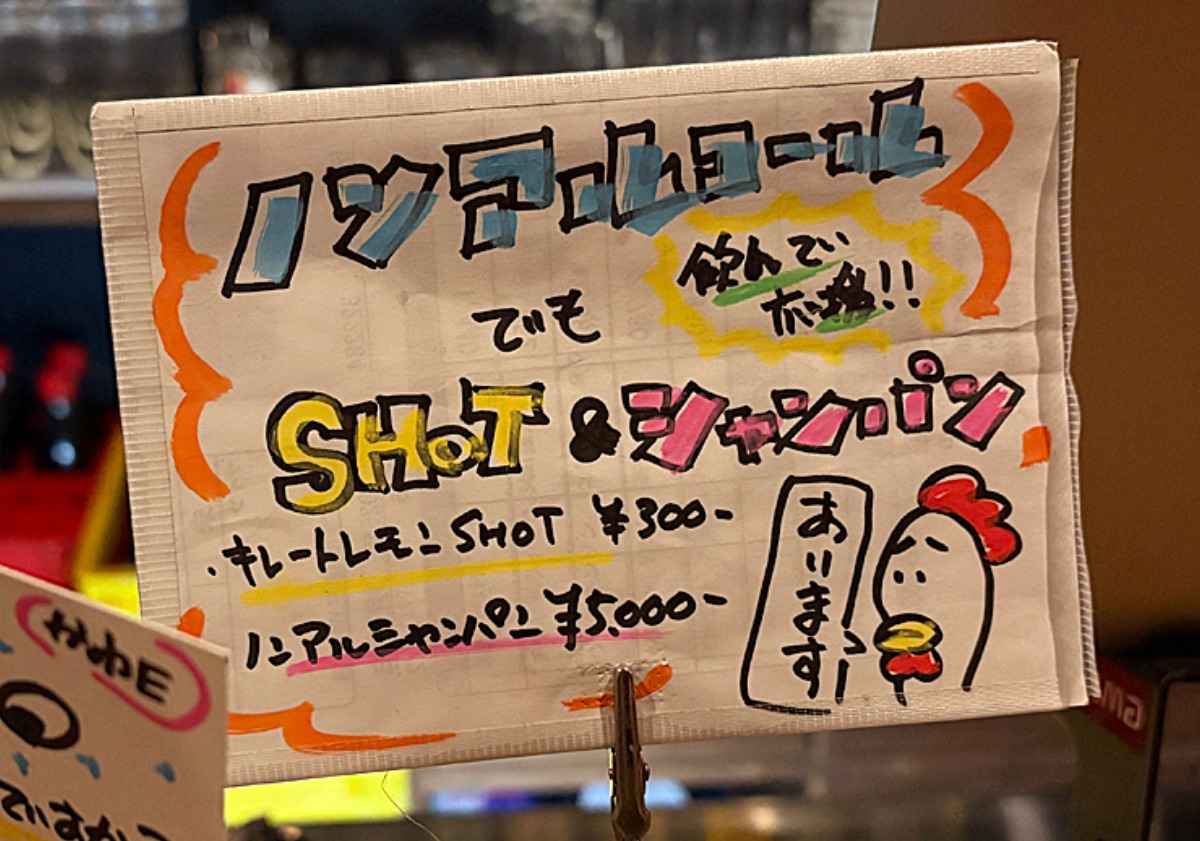 ノンアルコール
飲んで
でも
SHOT & シャンパン
・キレートレモンSHOT ¥300-
ノンアルシャンパン ¥5.000-
あります